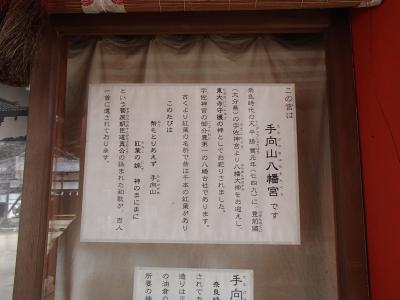 この宮は
手向山八幡宮です
奈良時代の天平勝宝元年(七四九)に、豊前国
(大分県)の宇佐神宮より八幡大神をお迎えし、
東大寺守護の神としてお祀りされました。
宇佐神宮の御分霊第一の八幡台社であります。
古くより紅葉の名所で昔は千本の紅葉があり
このたびは
幣もとりあえず 手向山
紅葉の錦 神のまにまに
という菅原朝臣道真公の詠まれた和歌が、百人
一首に選されております。
手向
奈良時
されてお
造りは正
の油倉の
所要の棟